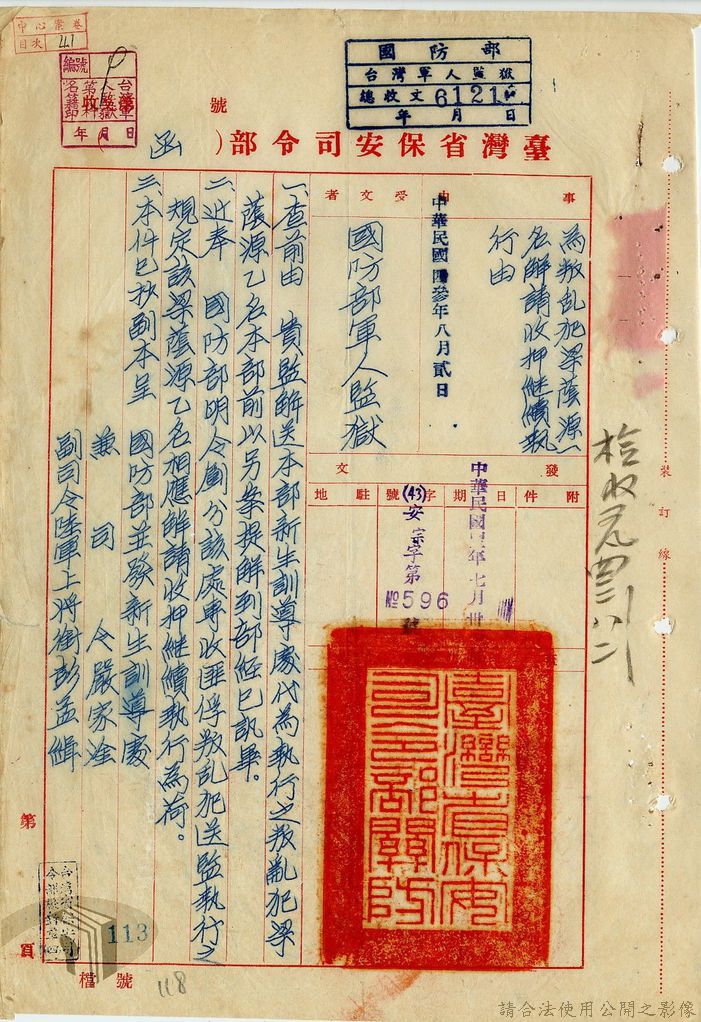 中心案卷
目次 41
編號
年 月 日
國防部
台灣軍人監獄
總收文 6121
年 月 日
號
臺灣省保安司令部(函)
事由
為叛乱犯梁蔭源一
名解請收押継續執
行由
中華民國四參年八月貳日
受文者
國防部軍人監獄
發文
附件
日期
中華民國 年七月卅
字號
(43)安宗字第
№596
號
駐地
臺灣省保安司令部關防
一、查前由 貴監解送本部新生訓導處代為執行之叛亂犯梁
蔭源乙名本部前以另案提解到部經已訊畢。
二、近奉 國防部明令劃分該處專收匪俘叛乱犯送監執行之
規定該梁蔭源乙名相應解請收押継續執行為荷。
三、本件已抄副本呈 國防部並發新生訓導處
兼司令嚴家淦
副司令陸軍上將銜彭孟緝
裝訂線
第
113
頁
檔號
118
請合法使用公開之影像